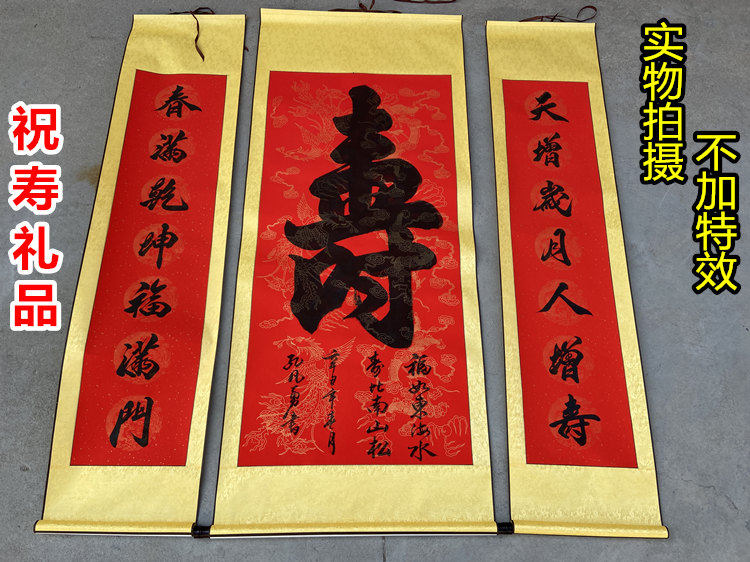 祝寿礼品
实物拍摄
不加特效
天增歲月人增寿
壽
福如東海水
寿比南山松
春滿乾坤福滿門